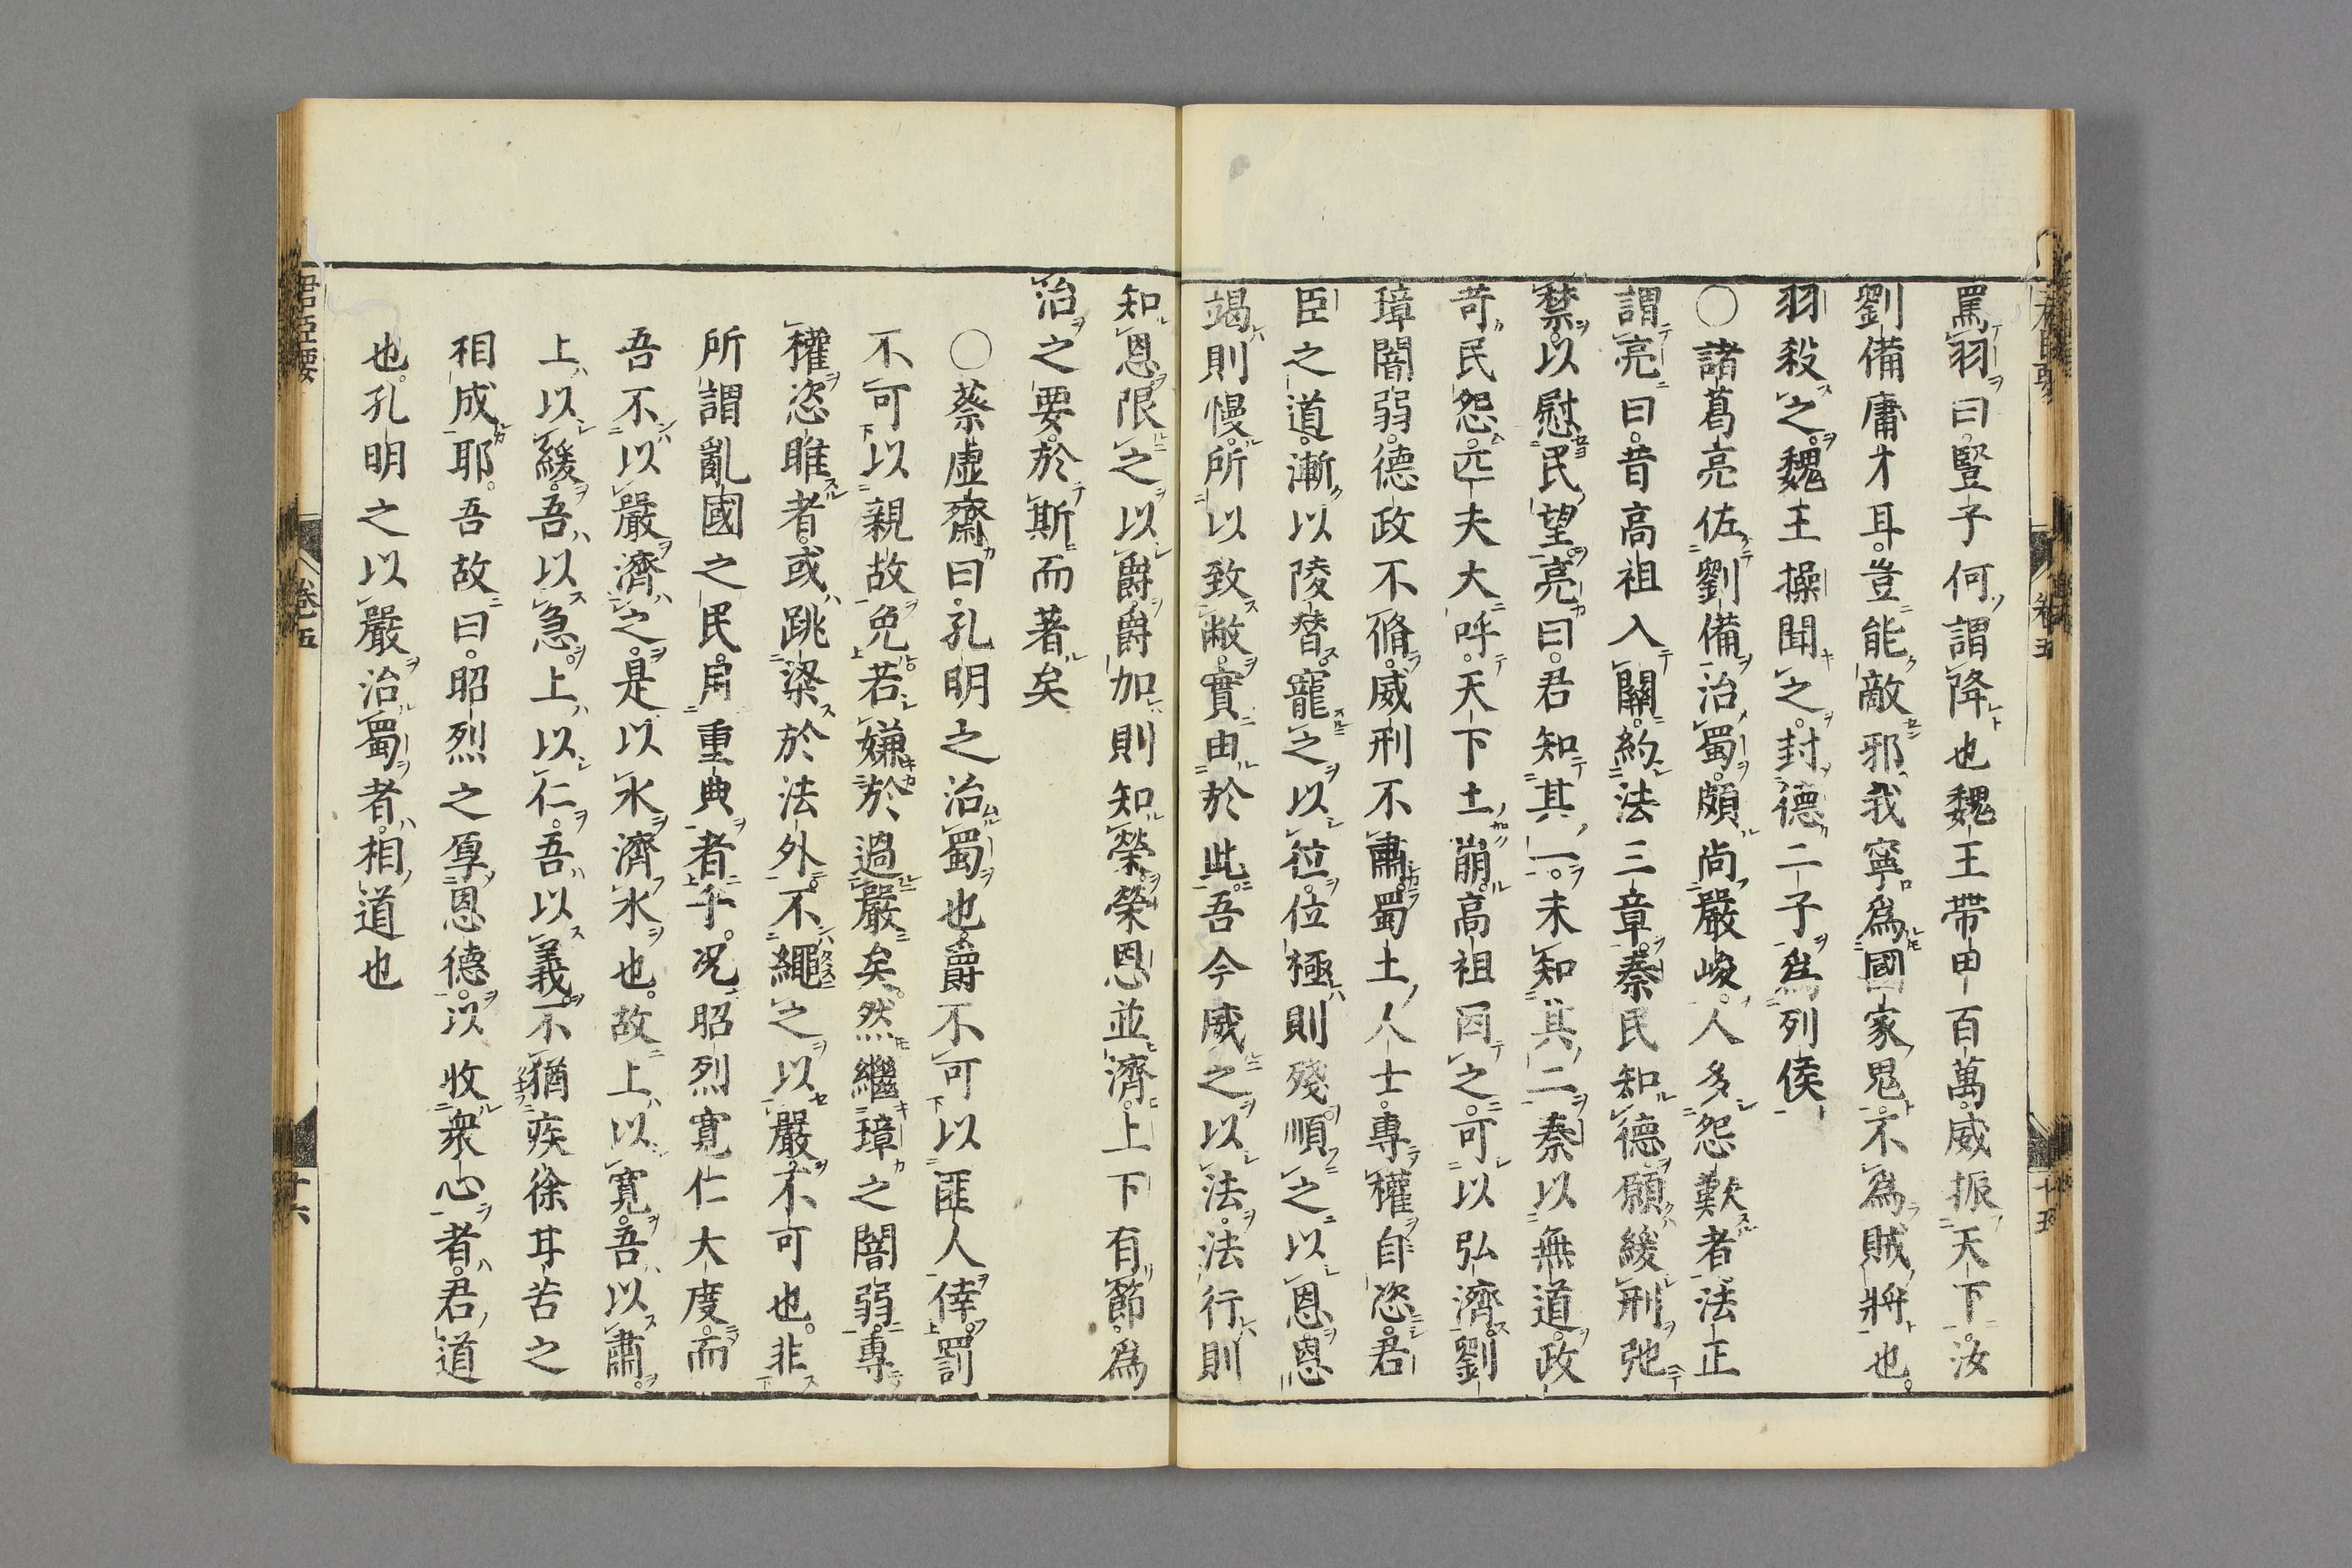 罵羽曰豎子何謂降也魏王帶甲百萬威振天下汝
劉備庸才耳豈能敵邪我寧爲國家鬼不爲賊將也
羽殺之魏王操聞之封德二子爲列侯
〇諸葛亮佐劉備治蜀頗尚嚴峻人多怨歎者法正
謂亮曰昔高祖入關約法三章秦民知德願緩刑弛
禁以慰民望亮曰君知其一未知其二秦以無道政
苛民怨匹夫大呼天下土崩高祖因之可以弘濟劉
璋闇弱德政不脩威刑不肅蜀土人士專權自恣君
臣之道漸以陵替寵之以位位極則殘順之以恩恩
竭則慢所以致敝實由於此吾今威之以法法行則
知恩限之以爵爵加則知榮榮恩並濟上下有節爲
治之要於斯而著矣
〇蔡虛齋曰孔明之治蜀也爵不可以匪人倖罰
不可以親故免若嫌於過嚴矣然繼璋之闇弱專
權恣睢者或跳梁於法外不繩之以嚴不可也非
所謂亂國之民用重典者乎况昭烈寬仁大度而
吾不以嚴濟之是以水濟水也故上以寬吾以肅
上以緩吾以急上以仁吾以義不猶疾徐甘苦之
相成耶吾故曰昭烈之厚恩德以收衆心者君道
也孔明之以嚴治蜀者相道也
君臣要
卷五
十六
卷五
十五